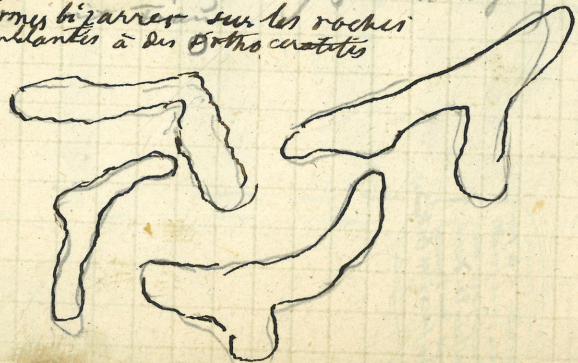 ormes bizarres sur les roches
mblantes à des Orthocératites